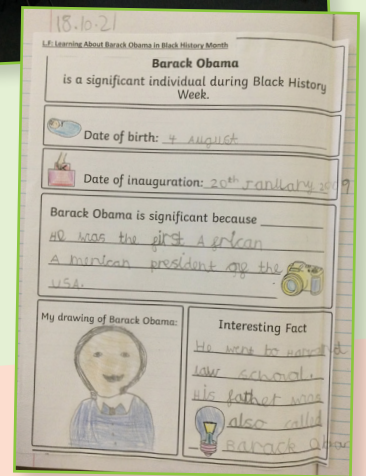 18.10.21
L.F: Learning About Barack Obama in Black History Month
Barack Obama
is a significant individual during Black History
Week.
Date of birth: 4 August
Date of inauguration: 20th January 2009
Barack Obama is significant because
He was the first African
American president of the
USA.
My drawing of Barack Obama:
Interesting Fact
He went to Harvard
law school.
His father was
also called
Barack Obama